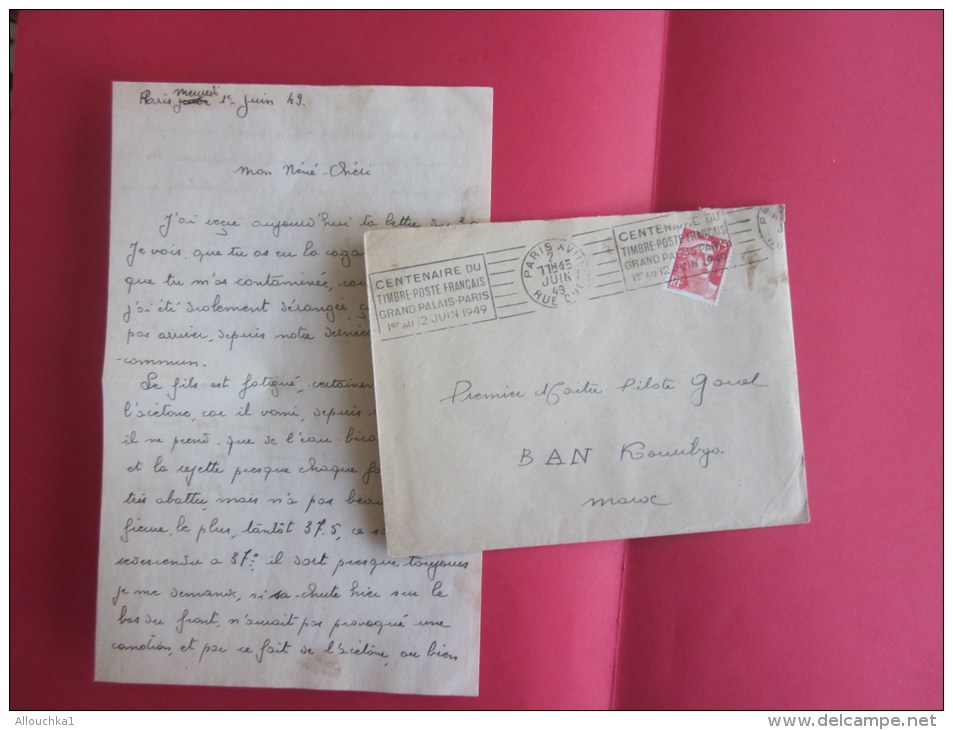 Paris mercredi 1er Juin 49.
Mon Néné-Chéri
J'ai reçue aujourd'hui ta lettre du
Je vois, que tu as eu la
que tu m'as contaminée,
j'ai été drolement dérangée
pas arriver, depuis notre dernier
-commun.
Le fils est fatigué, certainem
l'acétone, car il vomi, depuis
il ne prend que de l'eau
et la rejette presque chaque
très abattu, mais n'a pas beau
fièvre, le plus, tantôt 37.5, ce
redescendu a 37° il dort presque toujours
je me demande, si sa chute hier sur le
bas du front, n'aurait pas provoqué une
comotion, et par ce fait de l'acétone, ou bien
CENTENAIRE DU
TIMBRE-POSTE FRANÇAIS
GRAND PALAIS-PARIS
1er AU 12 JUIN 1949
PARIS XVII
2
11H45
JUIN
49
RUE
CENTENAIRE DU
TIMBRE-POSTE FRANÇAIS
GRAND PALAIS-PARIS
1er AU 12 JUIN 1949
Premier Maitre Pilote
BAN
Maroc
Allouchka1
www.delcampe.net